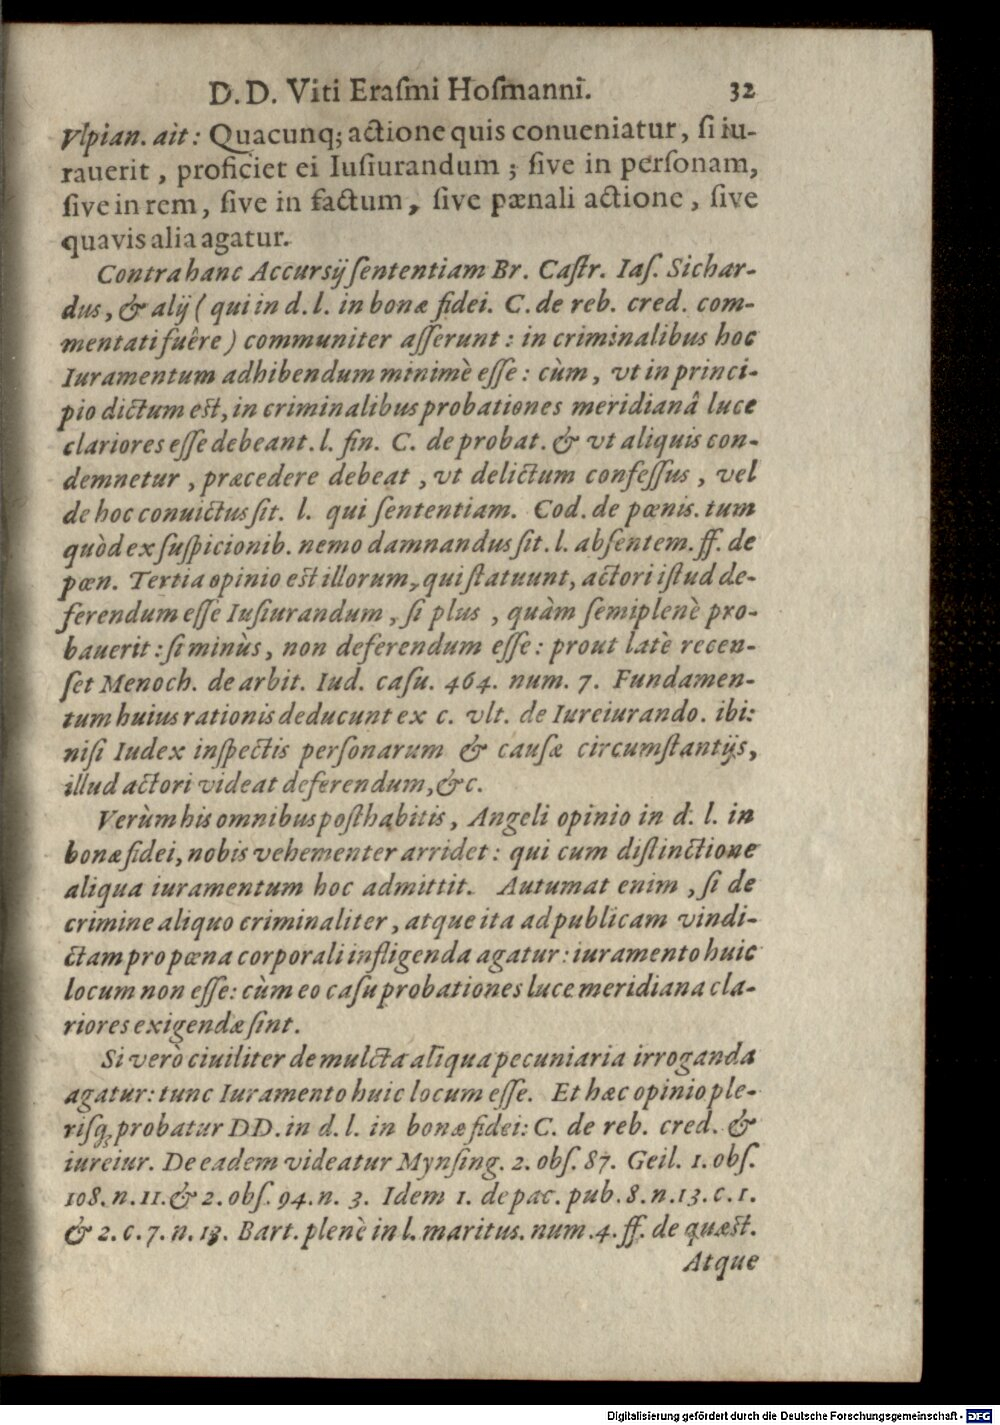 D. D. Viti Eraſmi Hoſmanni. 32
Vlpian. ait: Quacunq; actione quis conueniatur, ſi iu-
rauerit, proficiet ei Iuſiurandum; ſive in perſonam,
ſive in rem, ſive in factum, ſive pænali actione, ſive
quavis alia agatur.
Contra hanc Accurſij ſententiam Br. Caſtr. Iaſ. Sichar-
dus, & alij ( qui in d. l. in bonæ fidei. C. de reb. cred. com-
mentati fuêre ) communiter aſſerunt: in criminalibus hoc
Iuramentum adhibendum minimè eſſe: cùm, vt in princi-
pio dictum eſt, in criminalibus probationes meridianâ luce
clariores eſſe debeant. l. fin. C. de probat. & vt aliquis con-
demnetur, præcedere debeat, vt delictum confeſſus, vel
de hoc conuictus ſit. l. qui ſententiam. Cod. de pœnis. tum
quòd ex ſuſpicionib. nemo damnandus ſit. l. abſentem. ff. de
pœn. Tertia opinio eſt illorum, qui ſtatuunt, actori iſtud de-
ferendum eſſe Iuſiurandum, ſi plus, quàm ſemiplenè pro-
bauerit: ſi minùs, non deferendum eſſe: prout latè recen-
ſet Menoch. de arbit. Iud. caſu. 464. num. 7. Fundamen-
tum huius rationis deducunt ex c. vlt. de Iureiurando. ibi:
niſi Iudex inſpectis perſonarum & cauſæ circumſtantijs,
illud actori videat deferendum, &c.
Verùm his omnibus poſthabitis, Angeli opinio in d. l. in
bonæ fidei, nobis vehementer arridet: qui cum diſtinctione
aliqua iuramentum hoc admittit. Autumat enim, ſi de
crimine aliquo criminaliter, atque ita ad publicam vindi-
ctam pro pœna corporali infligenda agatur: iuramento huic
locum non eſſe: cùm eo caſu probationes luce meridiana cla-
riores exigendæ ſint.
Si verò ciuiliter de mulcta aliqua pecuniaria irroganda
agatur: tunc Iuramento huic locum eſſe. Et hæc opinio ple-
riſq; probatur DD. in d. l. in bonæ fidei: C. de reb. cred. &
iureiur. De eadem videatur Mynſing. 2. obſ. 87. Geil. 1. obſ.
108. n. 11. & 2. obſ. 94. n. 3. Idem 1. de pac. pub. 8. n. 13. c. 1.
& 2. c. 7. n. 13. Bart. plenè in l. maritus. num. 4. ff. de quæſt.
Atque
Digitalisierung gefördert durch die Deutsche Forschungsgemeinschaft - DFG